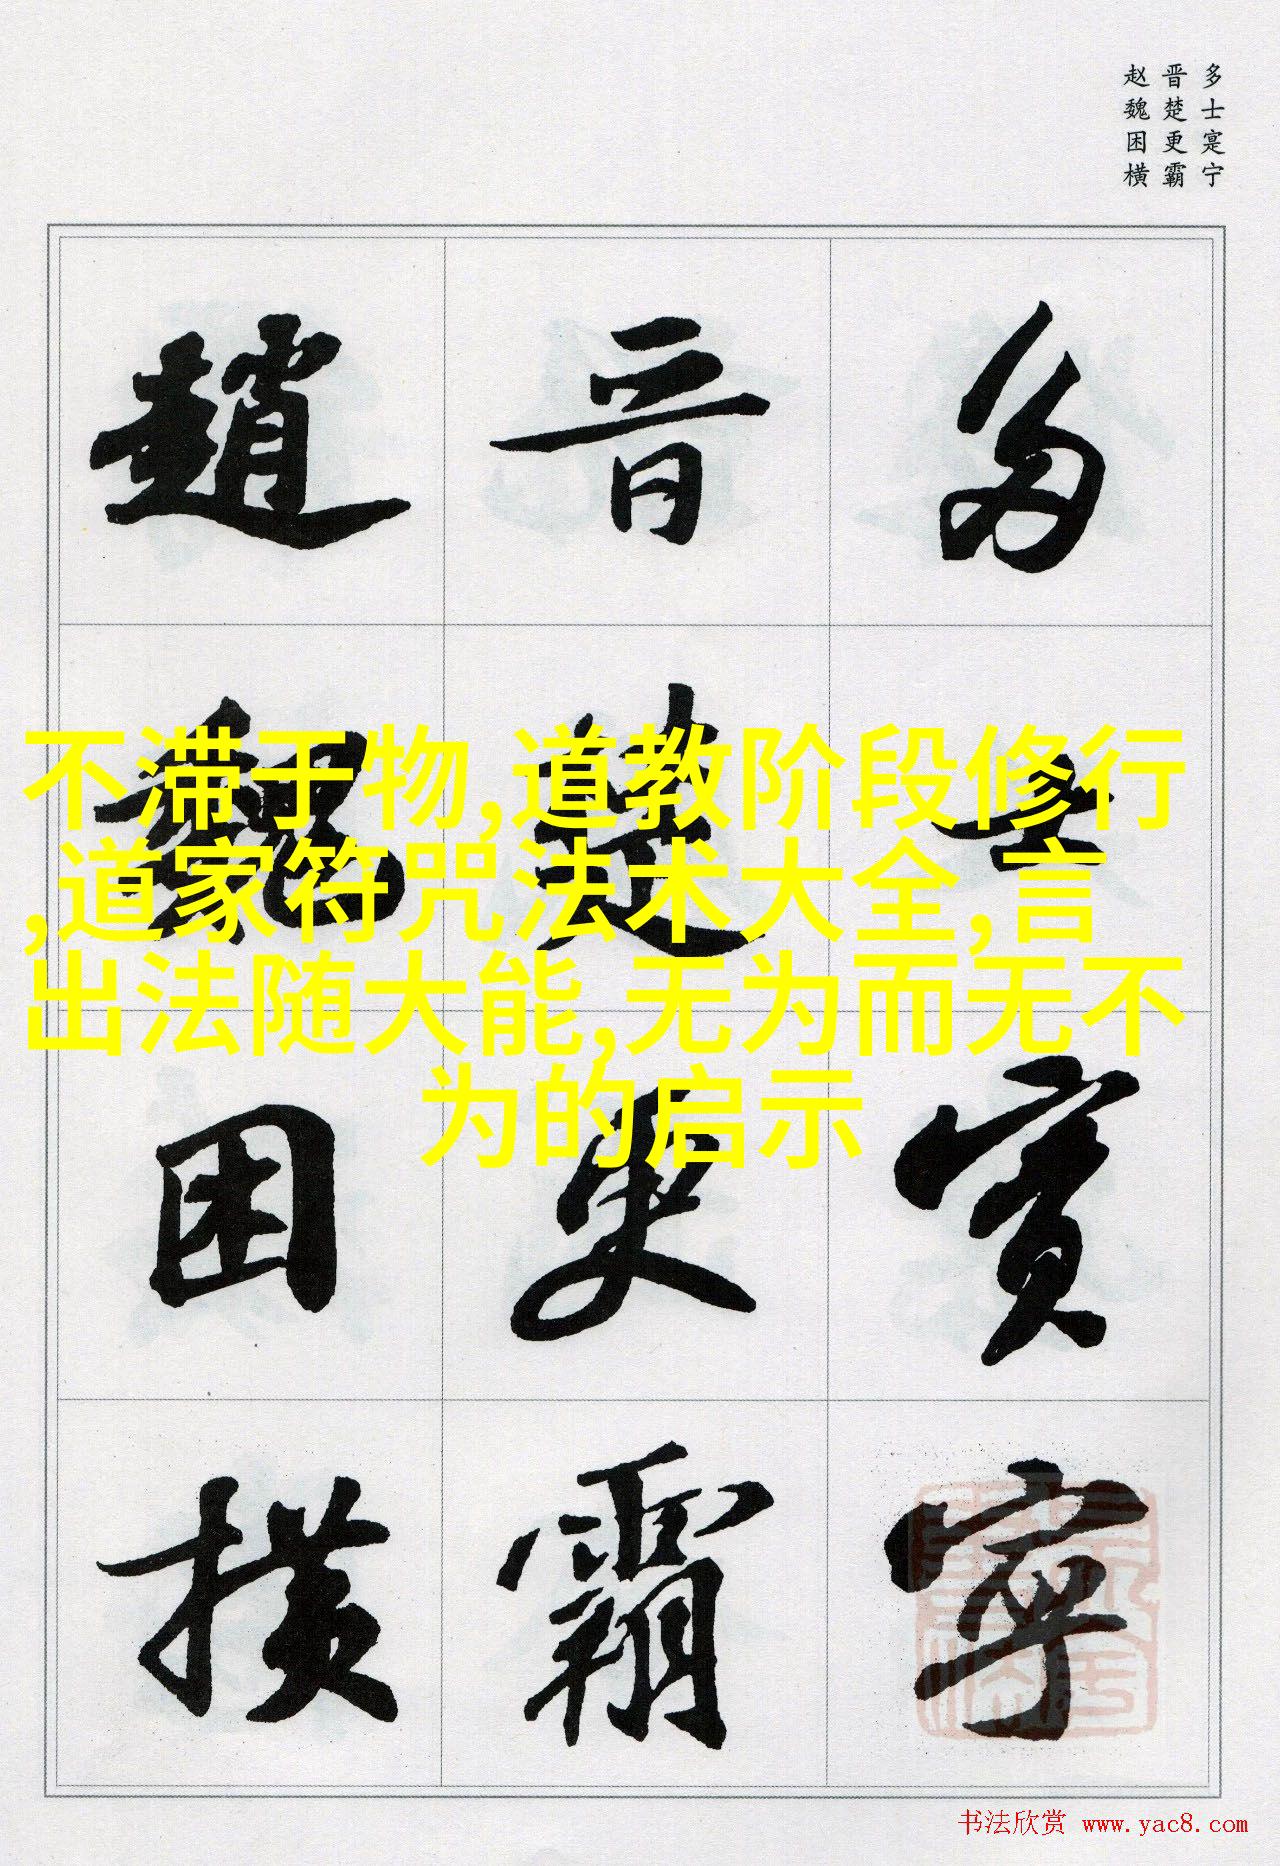 多士寔宁
晋楚更霸
赵魏困横
多士實寧
晋楚更霸
趙魏困横
不滞于物,道教阶段修行
,道家符咒法术大全,言
出法随大能,无为而无不
为的启示
书法欣赏 www.yac8.com